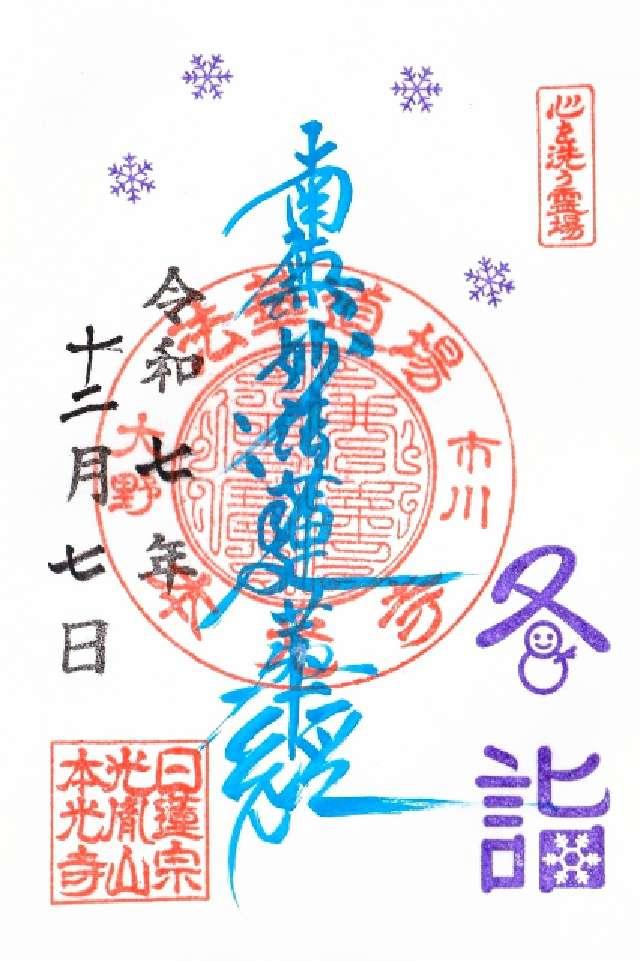 心を洗う霊場
南無妙法蓮華経
法華道場
市川
大野
令和七年
十二月七日
冬詣
日蓮宗
光胤山
本光寺